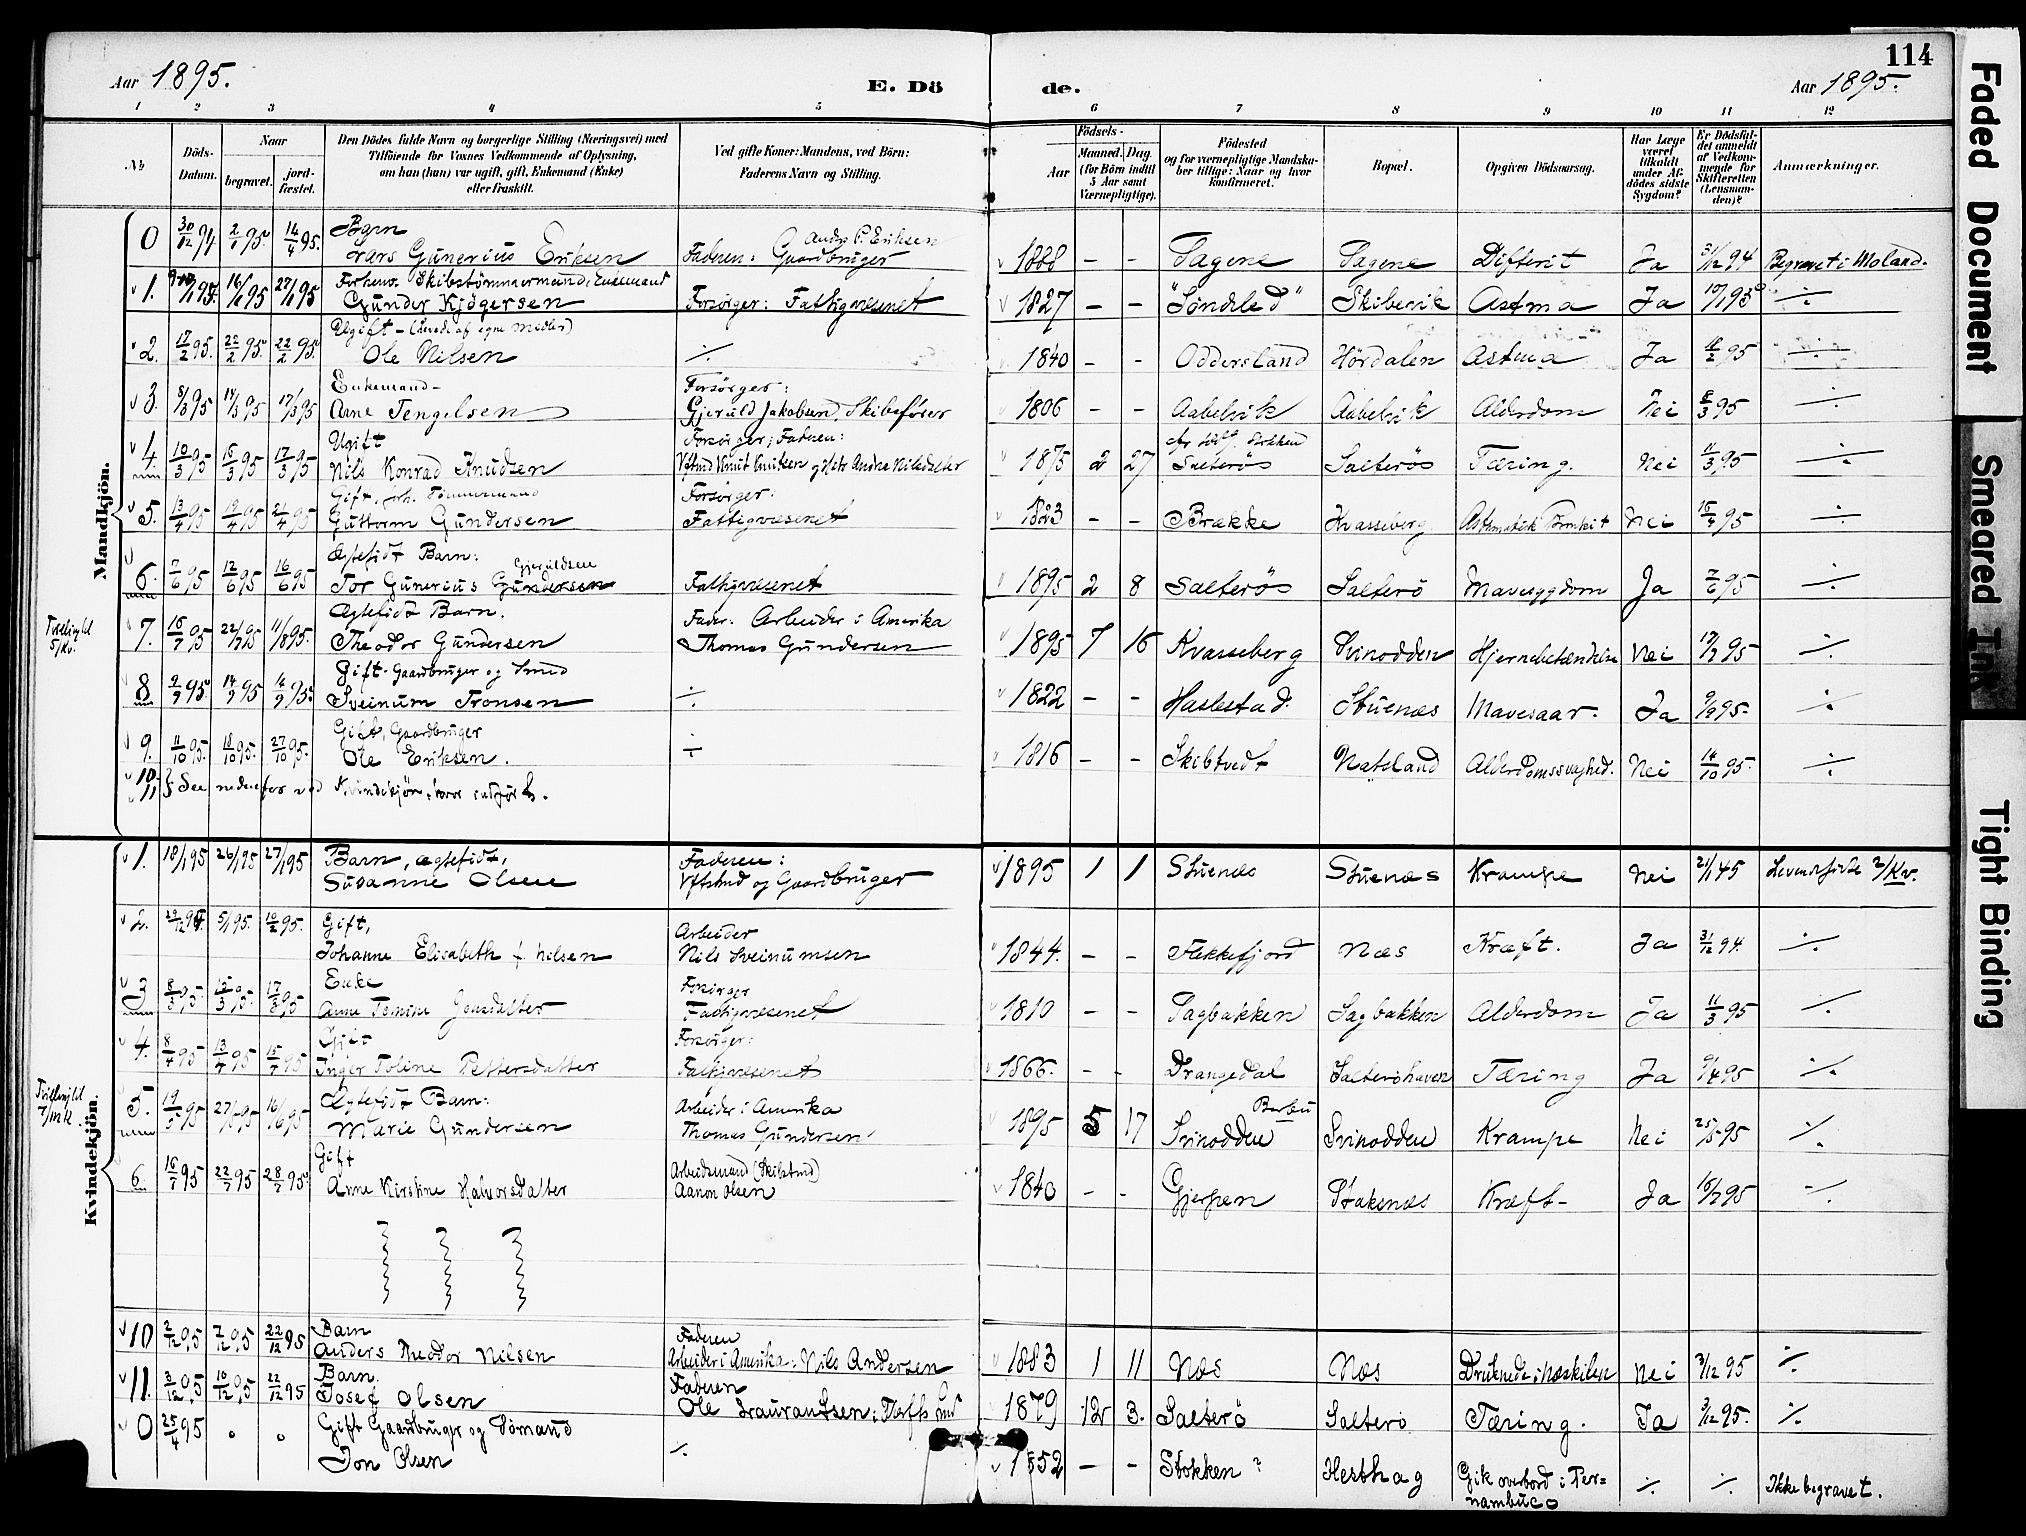 114
Aar 1895.
E. Dö de.
Aar 1895.
1 2 3 4 5 6 7 8 9 10 11 12
No
Döds-Datum.
Naar
begravet.
jord-fæstet.
Den Dödes fulde Navn og borgerlige Stilling (Næringsvei) med Tilföiende for Voxnes Vedkommende af Oplysning, om han (hun) var ugift, gift, Enkemand (Enke) eller fraskilt.
Ved gifte Koner: Mandens, ved Börn: Faderens Navn og Stilling.
Födsels-
Aar
Maaned. Dag.
(for Börn indtil 5 Aar samt Værnepligtige).
Födested og for værnepligtige Mandskaber tillige: Naar og hvor konfirmeret.
Bopæl.
Opgiven Dödsaarsag.
Har Læge været tilkaldt under Afdödes sidste Sygdom?
Er Dödsfaldet anmeldt af Vedkommende for Skifteretten (Lensmanden)?
Anmærkninger.
Mandkjön.
0 30/12 94 2/1 95 14/4 95. Barn Lars Gunerius Eriksen Faderen: Gaardbruger Anders P. Eriksen 1888 – – Sagene Sagene Difterit Ja 31/12 94 Begravet i Moland.
1. 16/1 95 27/1 95 Forhenv. Skibstømmermand, Enkemand Gunder Kjøgersen Forsørger: Fattigvæsenet 1827 – – "Søndeled" Skibevik Astma Ja 10/1 95 ./.
2. 17/2 95. 22/2 95. 22/2 95. Ugift – (levede af egne Midler) Ole Nilsen ./. 1840 – – Oddersland Hørdalen Astma Ja 18/2 95 ./.
3. 8/3 95 14/3 95 17/3 95 Enkemand – Arne Tengelsen Forsørger: Gjeruld Jakobsen, Skibsfører 1806 – – Aabelvik Aabelvik Alderdom Nei 8/3 95 ./.
4. 10/3 95 16/3 95 17/3 95 Ugift Nils Konrad Knudsen Forsørger; Faderen: 1875 2 27 Salterøs Salterøs Tæring. Nei 11/3 95 ./.
5. 13/4 95 19/4 95 21/4 95 Gift, frh. Tømmermand Guttorm Gundersen Forsørger: Fattigvæsenet 1823 – – Brække Kvasseberg Asthmatisk Bronkit Nei 16/4 95 ./.
6. 7/6 95 12/6 95 16/6 95 Ægtefødt Barn: Tor Gunerius Gundersen Gjeruldsen Fattigvæsenet 1895 2 8 Salterøs Salterø Mavesygdom Ja 7/6 95 ./.
Tvillingfd 5/Kv.
7. 16/7 95 22/7 95 11/8 95. Ægtefødt Barn. Theodor Gundersen Fader: Arbeider i Amerika Thomas Gundersen 1895 7 16 Kvasseberg Svinodden Hjernebetændelse Nei 17/7 95 ./.
8 9/9 95 14/9 95 16/9 95 Gift. Gaardbruger og Smed Sveinum Tronsen ./. 1822 – – Haslestad. Stuenæs Mavesaar. Ja 9/9 95. ./.
9. 11/10 95. 18/10 95. 27/10 95. Gift, Gaardbruger Ole Eriksen. ./. 1816 – – Skibtvedt Natsland Alderdomssvaghed. Nei 14/10 95. ./.
10. 11 } See nedenfor ved Kvindekjøn, hvor indført.
Kvindekjön.
1. 18/1 95 26/1 95 27/1 95 Barn, ægtefødt, Susanne Olsen Faderen: og Gaardbruger 1895 1 1 Stuenæs Stuenæs Krampe Nei 21/1 45 Levendefødte 2/Kv.
2. 29/12 94. 5/1 95. 10/2 95. Gift, Johanne Elisabeth f. Nilsen Arbeider Nils Sveinumsen 1844. – – Flekkefjord Næs Kræft. Ja 31/12 94. ./.
3 8/3 95. 15/3 95. 17/3 95 Enke Anne Tomine Jensdatter Forsørger Fattigvæsenet 1810 – – Sagbakken Sagbakken Alderdom Ja 11/3 95 ./.
4. 8/4 95 13/4 95 15/4 95 Gift Inger Toline Pettersdatter Forsørger: Fattigvæsenet 1866. – – Drangedal Salterøhaven Tæring Ja 9/4 95 ./.
Tvillingfd 7/Mk.
5. 19/5 95 27/5 95 16/6 95 Ægtefødt Barn: Marie Gundersen Arbeider i Amerika Thomas Gundersen 1895 5 17 Svinodden Barbu Svinodden Krampe Nei 25/5 95 ./.
6. 16/7 95 22/7 95 28/7 95 Gift Anne Kirstine Halvorsdatter Arbeidsmand (Skibstmd) Aanon Olsen 1840 – – Gjerpen Stakenæs Kræft – Ja 16/7 95 ./.
10 2/12 95 7/12 95 22/12 95 Barn Anders Theodor Nilsen Faderen Arbeider i Amerika: Nils Andersen 1883 1 11 Næs Næs Druknede i Næskilen Nei 3/12 95 ./.
11. 3/12 95 10/12 95 22/12 95 Barn. Josef Olsen Faderen Ole 1879 12 3. Salterø Salterø Tæring. Ja 3/12 95. ./.
0 25/4 95 " " Gift Gaardbruger og Sømand Jon Olsen ./. 1852 – – Stokken ? Hesthag Gik overbord i Pernambuco ./. ./. Ikke begravet.
Faded Document
Smeared Ink
Tight Binding